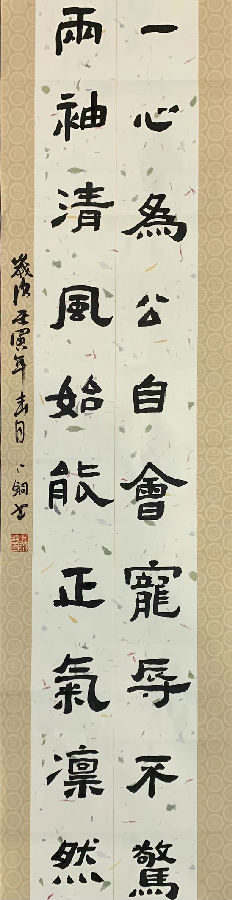 一心為公自會寵辱不驚
兩袖清風始能正氣凜然
歲次壬寅年春月